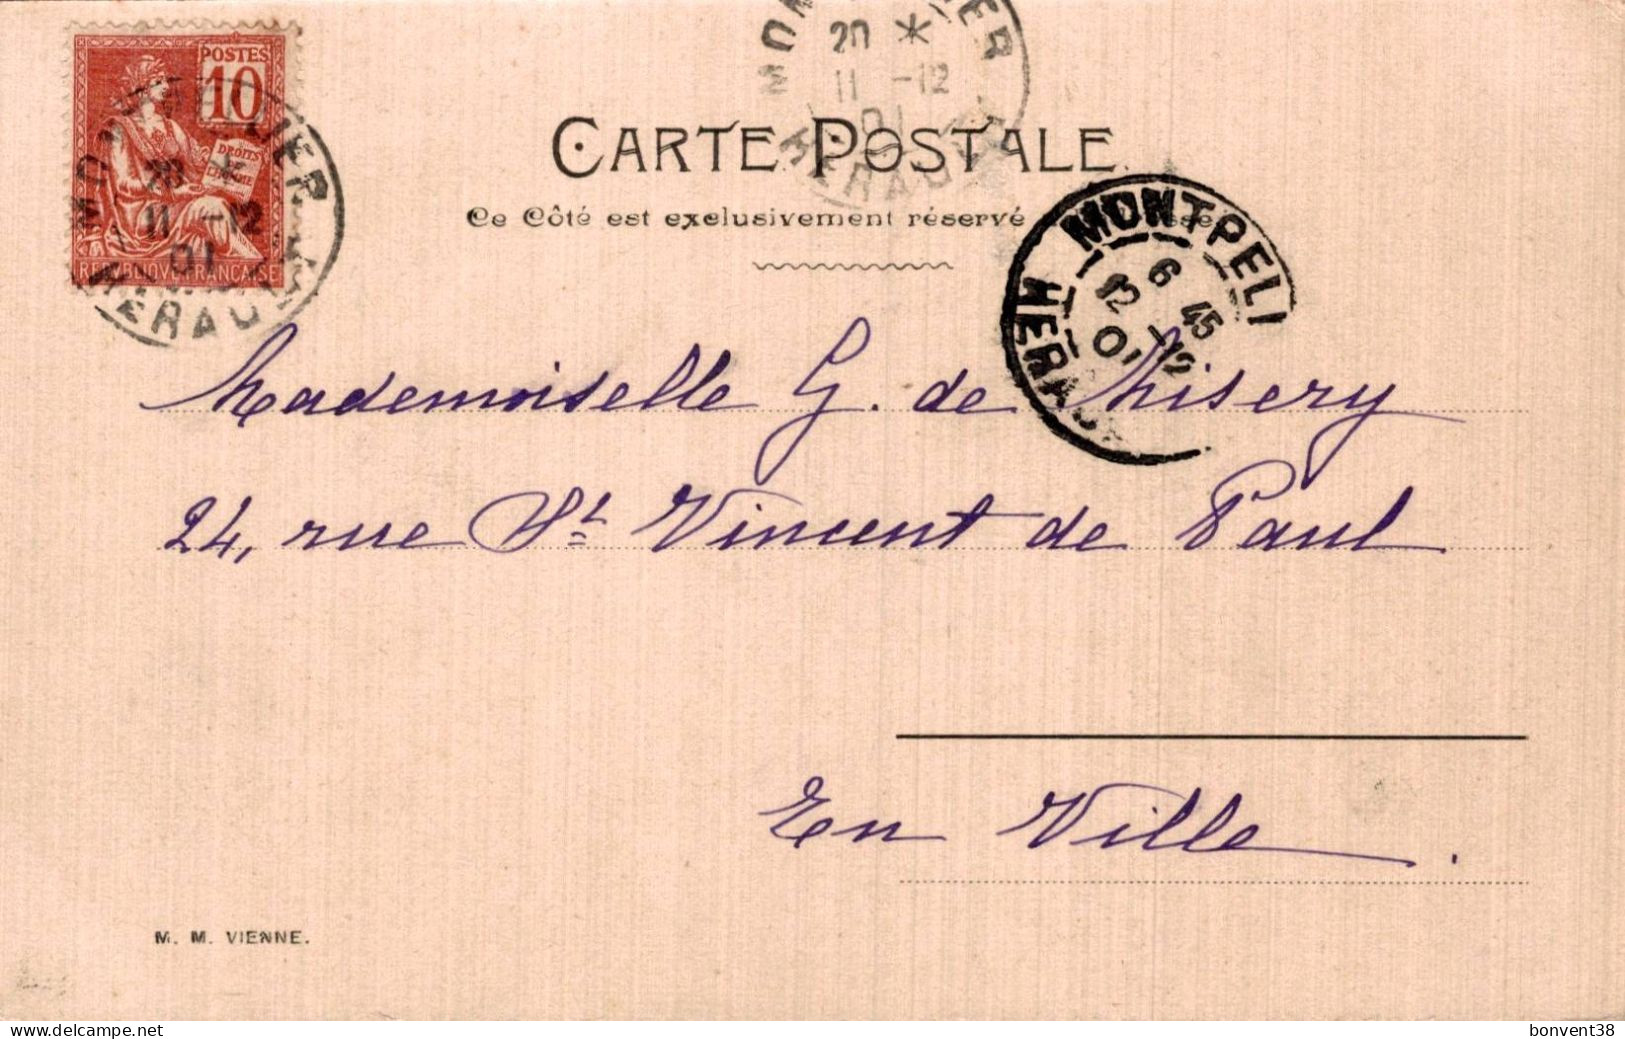 POSTES
10
DROITS
DE
L'HOMME
REPUBLIQUE FRANÇAISE
MONTPELLIER
20 *
11 -12
01
HERAULT
MONTPELLIER
20 *
11 -12
01
HERAULT
CARTE POSTALE
Ce Côté est exclusivement réservé
MONTPELLI
6 45
12 -12
01
HERAULT
Mademoiselle G. de Misery
24, rue St Vincent de Paul
En Ville.
M. M. VIENNE.
delcampe.net
bonvent38